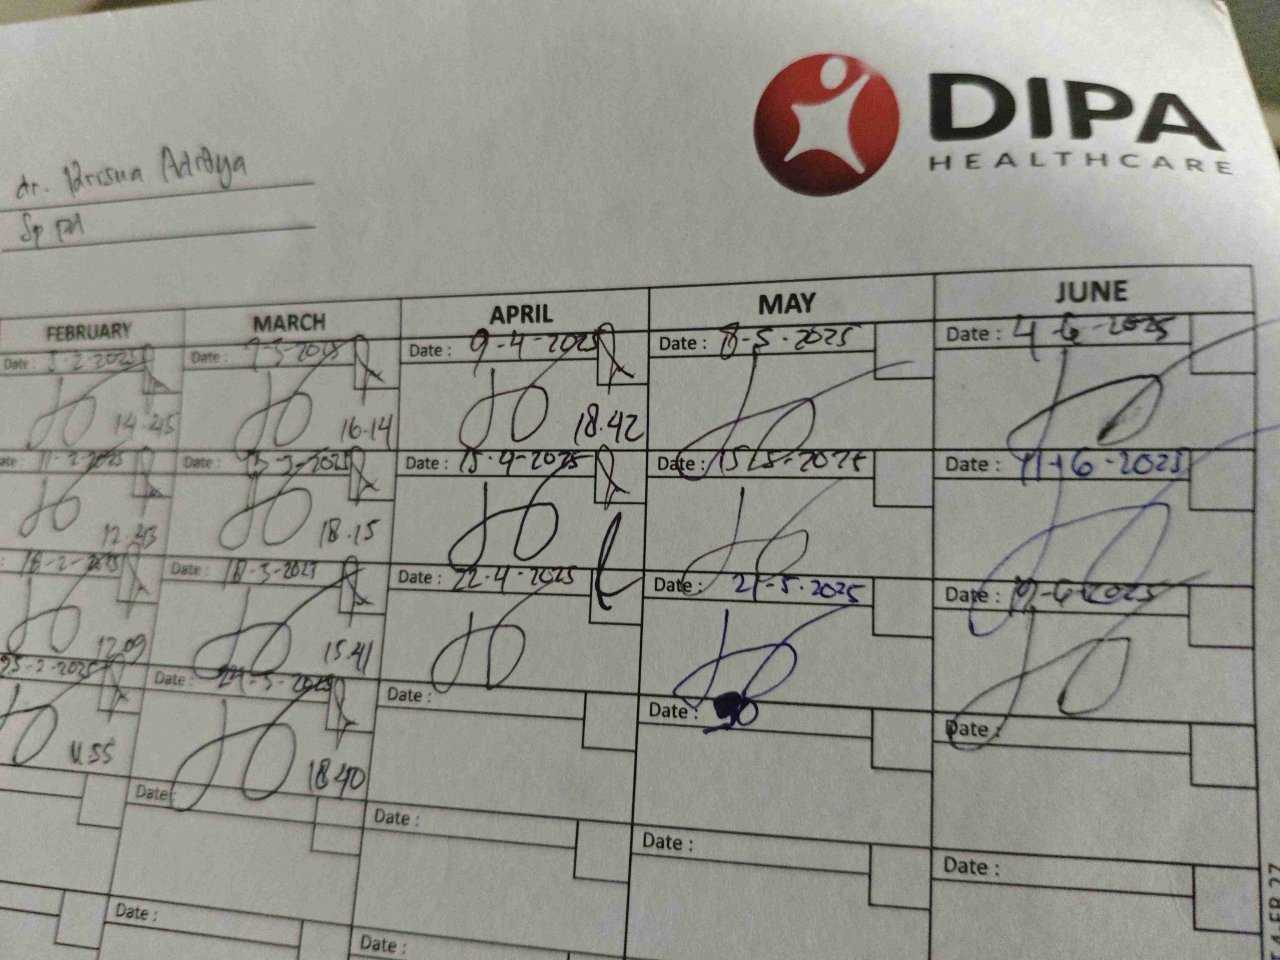 DIPA
HEALTHCARE
dr. Krisna Aditya
Sp PD
FEBRUARY MARCH APRIL MAY JUNE
Date : 5-2-2025 Date : Date : 9-4-2025 Date : 8-5-2025 Date : 4-6-2025
14.45 16.14 18.42
11-2-2025 Date : 13-3-2025 Date : 15-4-2025 Date : 15-5-2025 Date : 11-6-2025
12.43 18.15
18-2-2025 Date : 18-3-2025 Date : 22-4-2025 Date : 21-5-2025 Date :
12.09 15.41
25-2-2025 Date : Date : Date : Date :
11.55 18.40
Date : Date : Date : Date :
Date : Date :